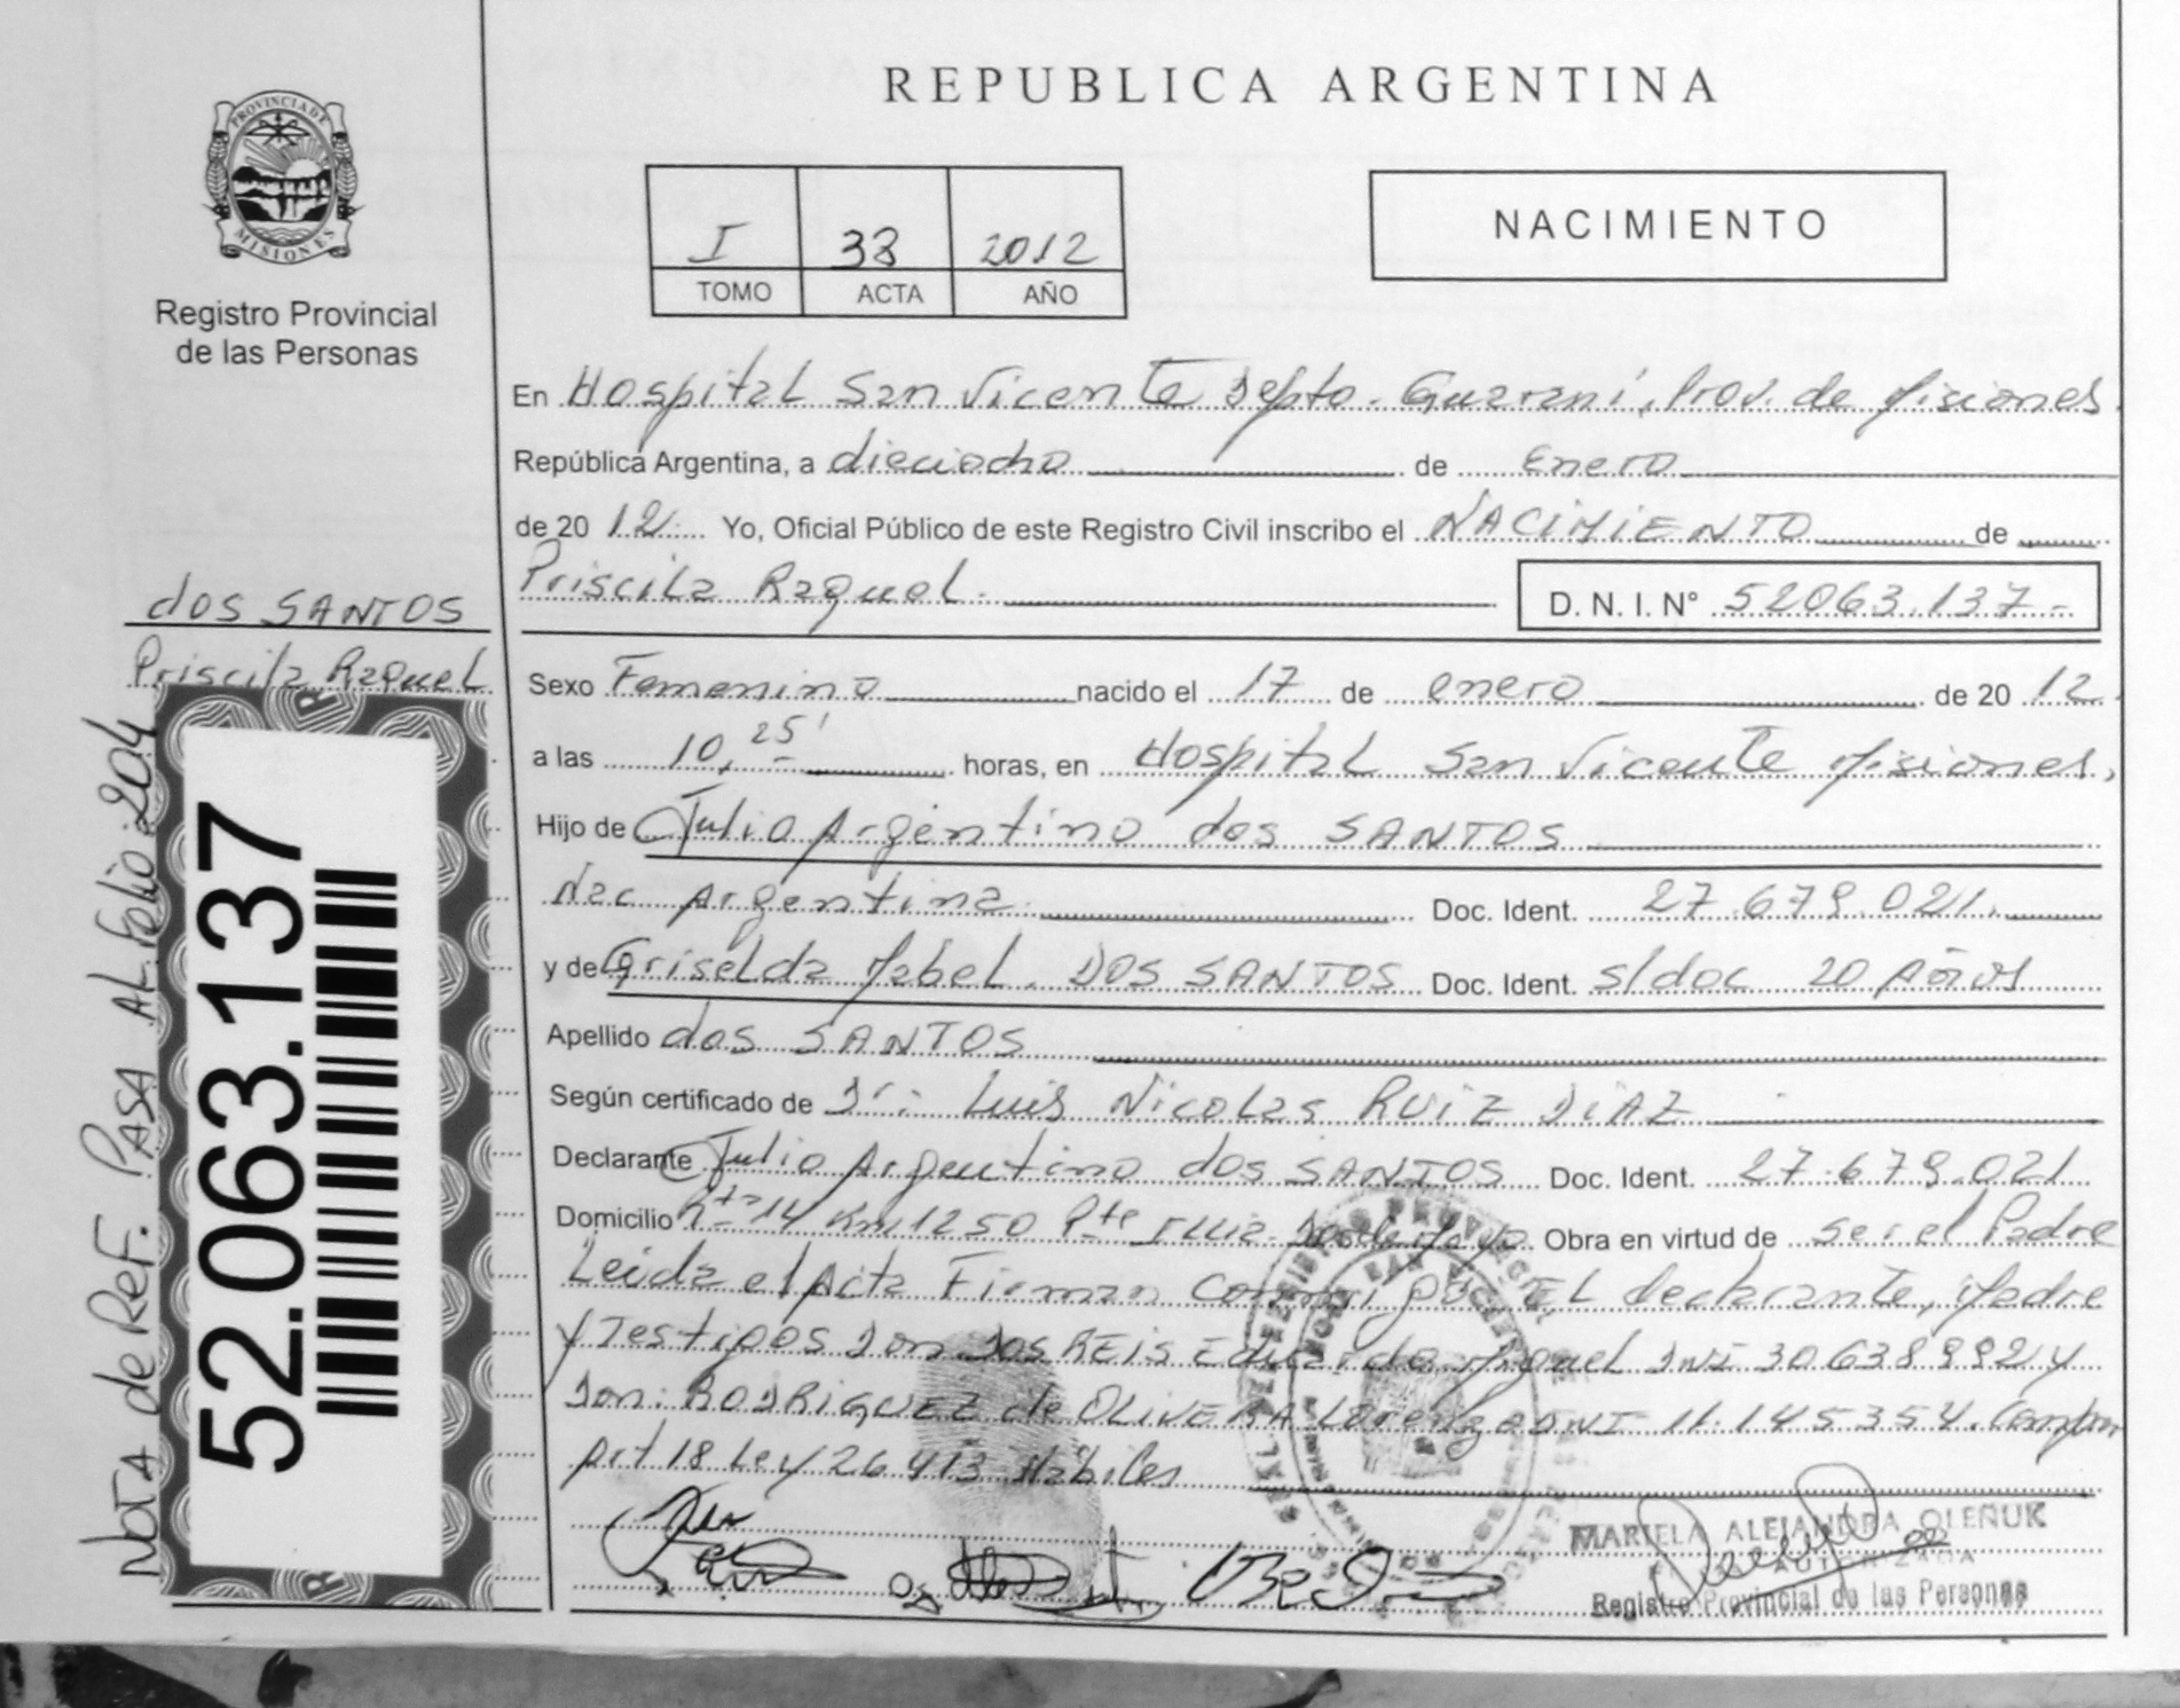 REPUBLICA ARGENTINA
PROVINCIA DE MISIONES
Registro Provincial
de las Personas
I 38 2012
TOMO ACTA AÑO
NACIMIENTO
En Hospital San Vicente Depto. Guaraní, Prov. de Misiones
República Argentina, a dieciocho de Enero
de 20 12 Yo, Oficial Público de este Registro Civil inscribo el NACIMIENTO de
Priscila Raquel. D. N. I. N° 52063.137-
dos SANTOS
Priscila Raquel
Sexo Femenino nacido el 17 de enero de 20 12
a las 10,25' horas, en Hospital San Vicente Misiones,
Hijo de Julio Argentino dos SANTOS
Nac Argentina Doc. Ident. 27.679.021.
y de Griselda Mabel. DOS SANTOS Doc. Ident. s/doc 20 Años
Apellido dos SANTOS
Según certificado de Dr: Luis Nicolas RUIZ DIAZ
Declarante Julio Argentino dos SANTOS Doc. Ident. 27.679.021
Domicilio Rta 14 Km 1250 Pte Obra en virtud de ser el Padre
Leida el Acta Firman Conmigo EL declarante, Madre
y Testigos Don DOS REIS Eduardo Miguel DNI 30638992 y
Don: RODRIGUEZ de OLIVERA Lorenzo DNI 11.145354.
Art 18 Ley 26.413 Hábiles
MARIELA ALEJANDRA OLEÑUK
AUTORIZADA
Registro Provincial de las Personas
NOTA de REF. PASA AL Folio 204
52.063.137